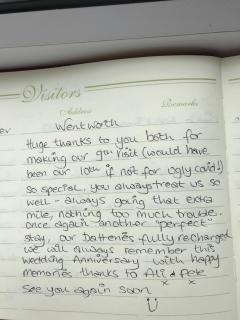 Visitors
Address Remarks
er Wentworth
Huge thanks to you both for
making our 9th visit (would have
been our 10th if not for ugly covid!)
so special, you always treat us so
well - always going that extra
mile, nothing too much trouble.
once again another "perfect"
stay, our batteries fully recharged
we will always remember this
wedding Anniversary with happy
memories thanks to Ali & Pete
x x
see you again soon